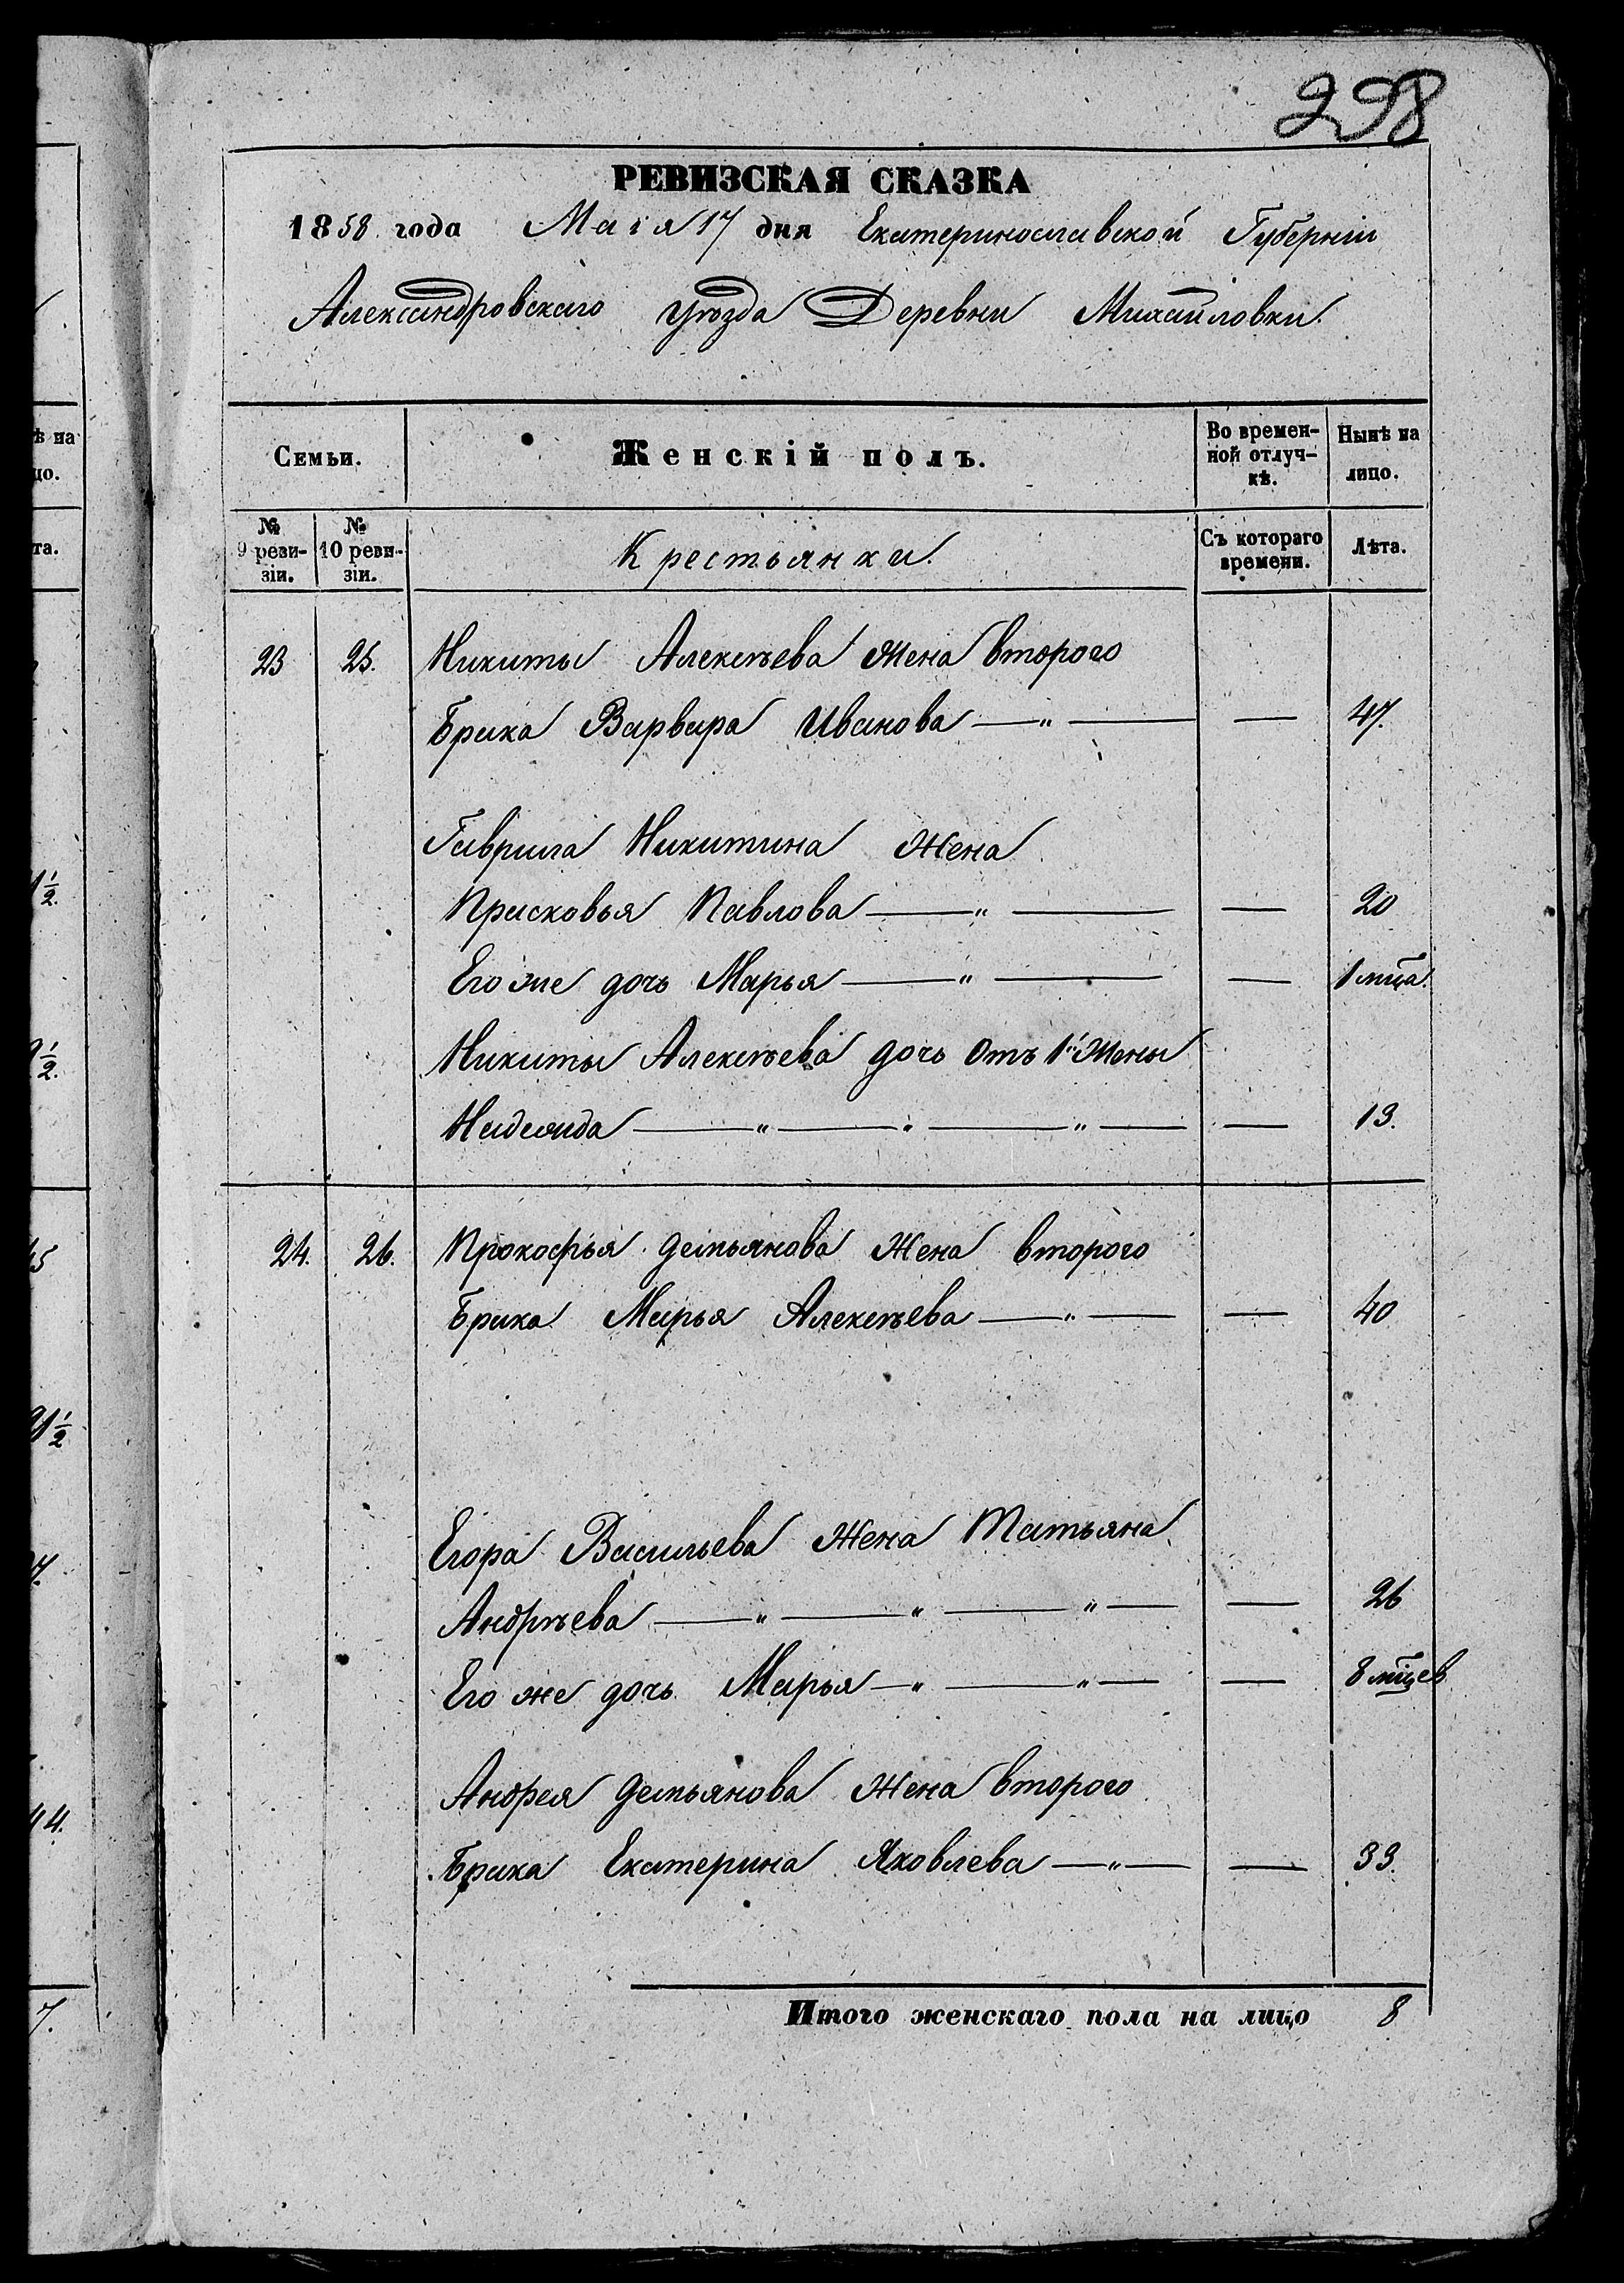 298
РЕВИЗСКАЯ СКАЗКА
1858 года Маія 17 дня Екатеринославской Губерніи
Александровскаго уѣзда Деревни Михайловки.
Семьи.
Женскій полъ.
Во времен-
ной отлуч-
кѣ.
Нынѣ на
лицо.
№
9 реви-
зіи.
№
10 реви-
зіи.
Крестьянки.
Съ котораго
времени.
Лѣта.
23 25. Никиты Алексѣева жена второго
Брака Варвара Иванова — " — — 47.
Гаврила Никитина жена
Прасковья Павлова — " — — 20
Его же дочь Марья — " — — 1 мца.
Никиты Алексѣева дочь отъ 1й жены
Надежда — " — " — " — — 13.
24. 26. Прокофья Демьянова жена второго
Брака Марья Алексѣева — " — — 40
Егора Васильева жена Татьяна
Андрѣева — " — " — " — — 26
Его же дочь Марья — " — " — — 8 мцев
Андрея Демьянова жена второго
Брака Екатерина Яковлева — " — — 33.
Итого женскаго пола на лицо 8
ѣ на
цо.
та.
1 1/2.
9 1/2.
5
9 1/2
7.
44.
7.